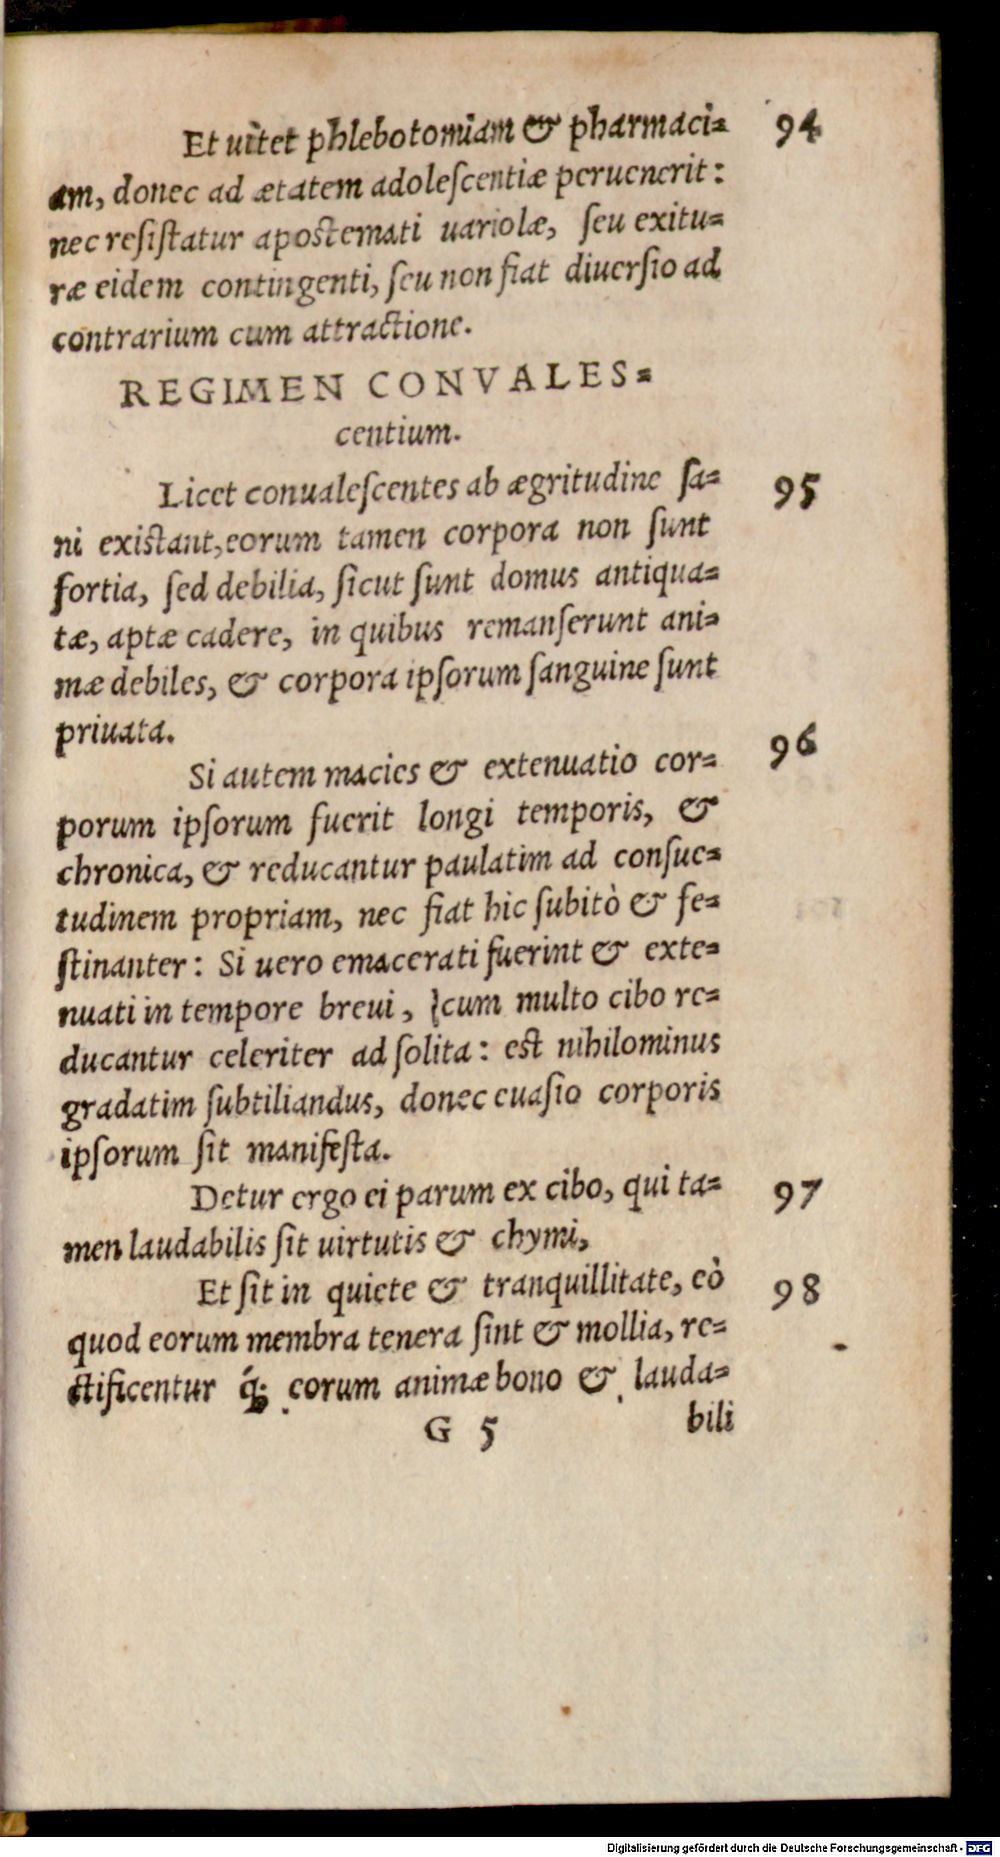 Et uitet phlebotomiam & pharmaci= 94
am, donec ad ætatem adoleſcentiæ peruenerit:
nec reſiſtatur apostemati uariolæ, ſeu exitu=
ræ eidem contingenti, ſeu non fiat diuerſio ad
contrarium cum attractione.
REGIMEN CONVALES=
centium.
Licet conualeſcentes ab ægritudine ſa= 95
ni existant, eorum tamen corpora non ſunt
fortia, ſed debilia, ſicut ſunt domus antiqua=
tæ, aptæ cadere, in quibus remanſerunt ani=
mæ debiles, & corpora ipſorum ſanguine ſunt
priuata.
Si autem macies & extenuatio cor= 96
porum ipſorum fuerit longi temporis, &
chronica, & reducantur paulatim ad conſue=
tudinem propriam, nec fiat hic ſubitò & fe=
ſtinanter: Si uero emacerati fuerint & exte=
nuati in tempore breui, cum multo cibo re=
ducantur celeriter ad ſolita: est nihilominus
gradatim ſubtiliandus, donec euaſio corporis
ipſorum ſit manifeſta.
Detur ergo ei parum ex cibo, qui ta= 97
men laudabilis ſit uirtutis & chymi,
Et ſit in quiete & tranquillitate, eò 98
quod eorum membra tenera ſint & mollia, re=
ctificentur q́; eorum animæ bono & lauda=
G 5 bili
Digitalisierung gefördert durch die Deutsche Forschungsgemeinschaft - DFG